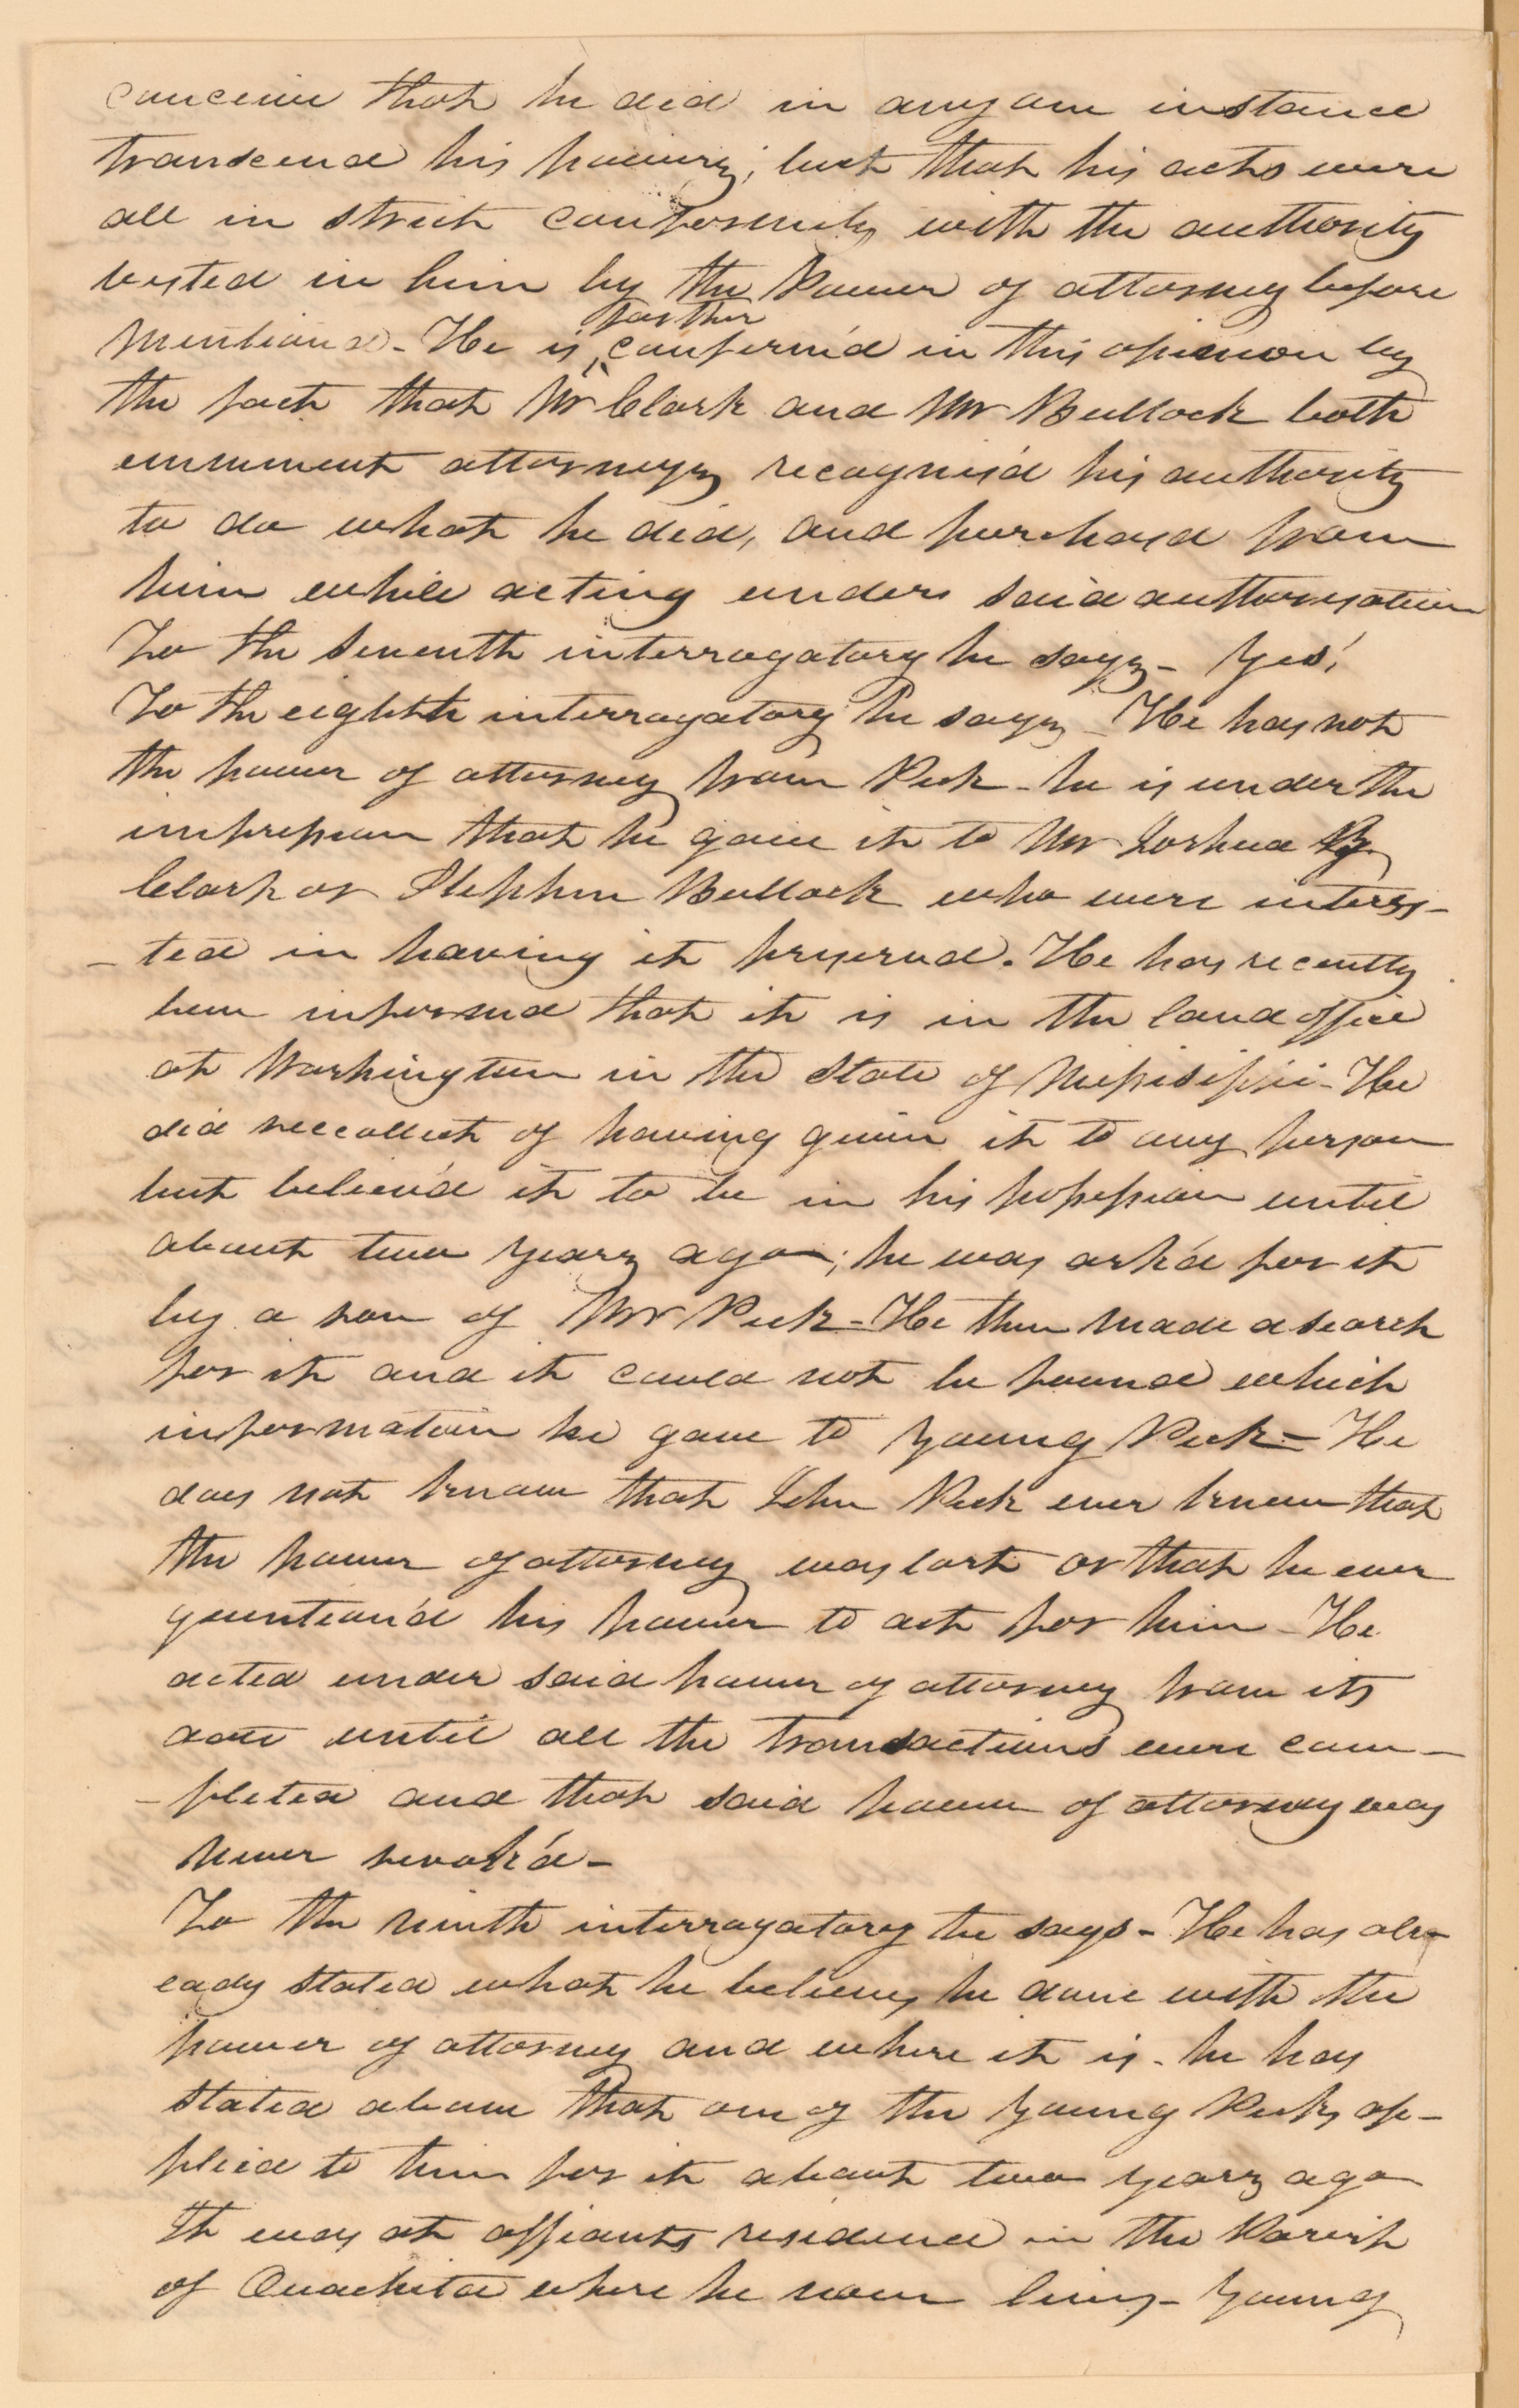 conceive that he did in any one instance
transcend his powers; but that his acts were
all in strict conformity with the authority
vested in him by the Power of attorney before
farther
mentioned - He is confirm'd in this opinion by
the fact that Mr Clark and Mr Bullock both
emminent attorneys recognis'd his authority
to do what he did, and purchased from
him while acting under said authorisation
To the seventh interrogatory he says - Yes!
To the eighth interrogatory he says - He has not
the power of attorney from Peck - he is under the
impression that he gave it to Mr Joshua G
Clark or Stephen Bullock who were interes-
-ted in having it preserved. He has recently
been informed that it is in the land office
at Washington in the State of Mississippi - He
did reccollect of having given it to any person
but believ'd it to be in his possession until
about two years ago; he was ask'd for it
by a son of Mr Peck - He then made a search
for it and it could not be found which
information he gave to young Peck - He
does not know that John Peck ever knew that
the power of attorney was lost or that he ever
question'd his power to act for him - He
acted under said power of attorney from its
date until all the transactions were com-
-pleted and that said power of attorney was
never revok'd -
To the ninth interrogatory he says - He has alr-
eady stated what he believes he done with the
power of attorney and where it is - he has
stated above that one of the young Pecks ap-
plied to him for it about two years ago
It was at affiants residence in the Parish
of Ouachita where he now lives - Young